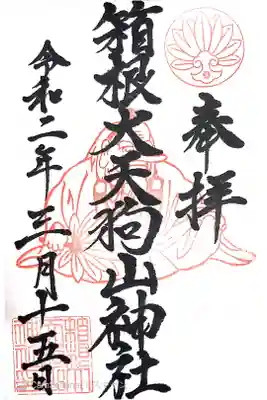 奉拝
箱根大天狗山神社
令和二年三月十五日